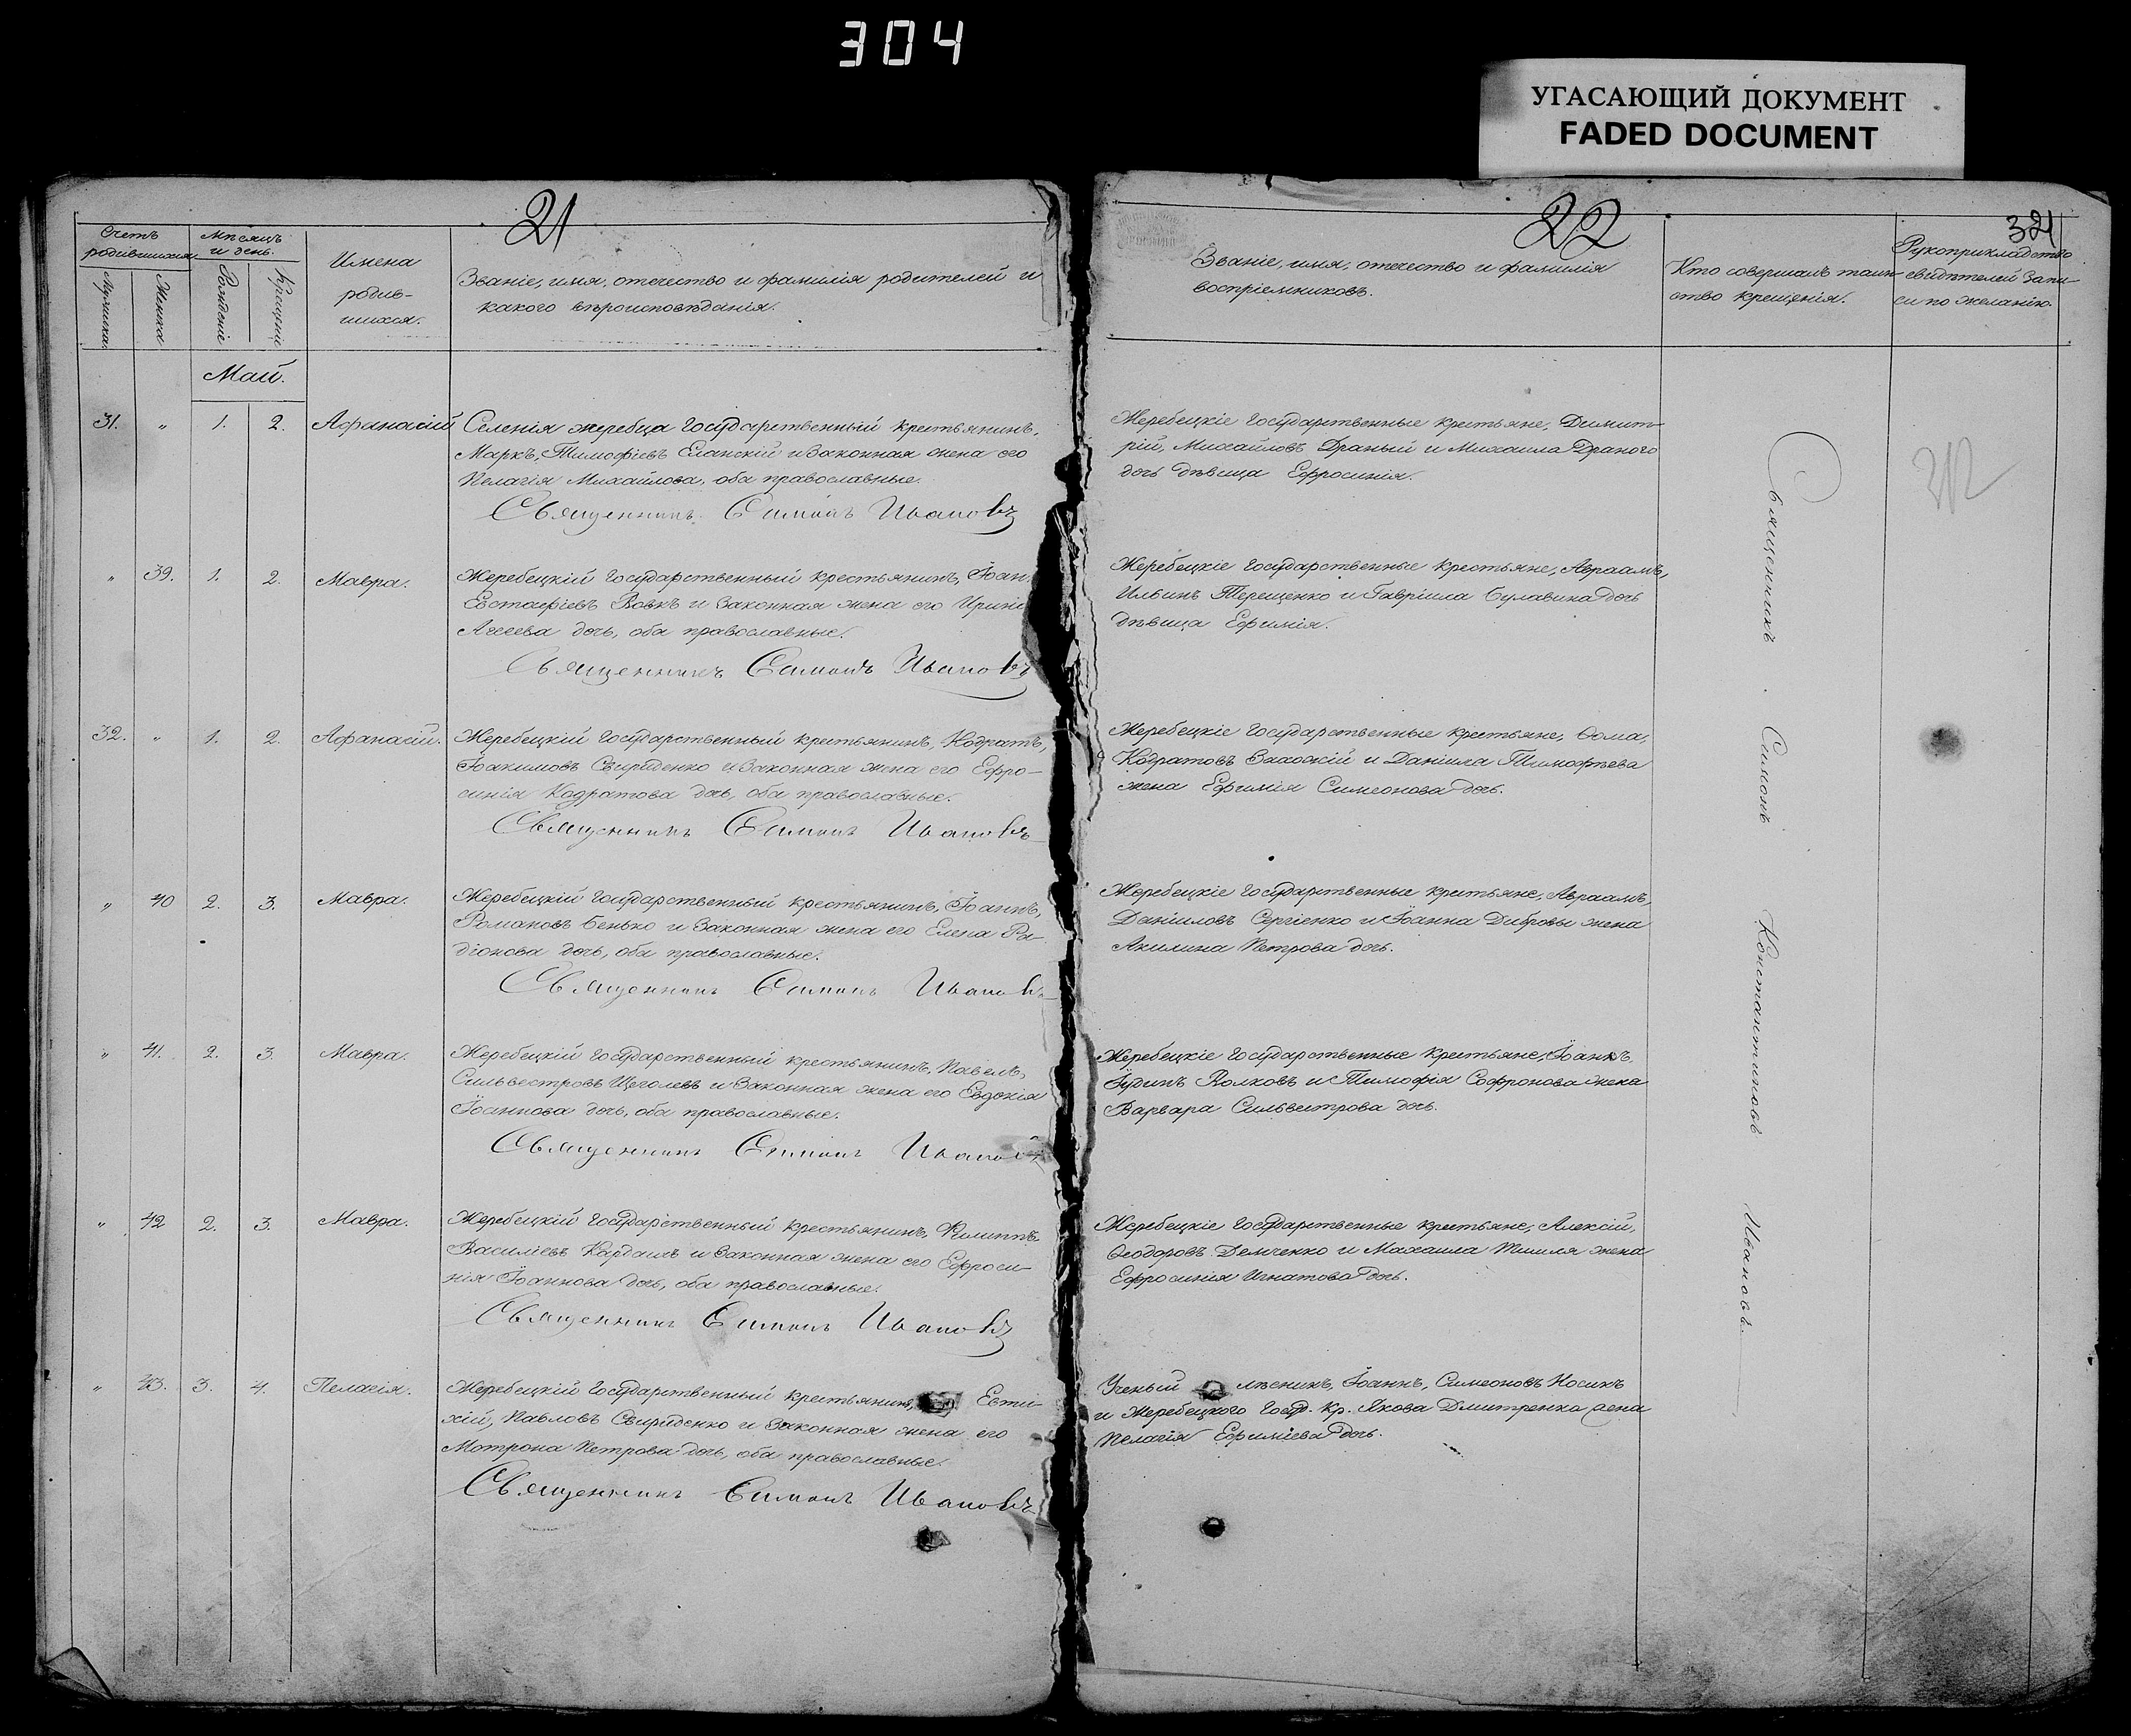 304
УГАСАЮЩИЙ ДОКУМЕНТ
FADED DOCUMENT
21
Счетъ родившихся.
Мѣсяцъ и день.
Мужеска.
Женска
Рожденіе
Крещеніе
Имена
родив-
шихся.
Званіе, имя, отечество и фамилія родителей и
какого вѣроисповѣданія.
Май.
31. „ 1. 2. Афанасій Селенія жеребца Государственный крестьянинъ,
Маркъ, Тимофіевъ Еланскій и Законная жена его
Пелагія Михайлова, оба православные.
Священникъ Симонъ Ивановъ
„ 39. 1. 2. Мавра. Жеребецкій Государственный крестьянинъ, Іоан.
Евстафіевъ Вовкъ и Законная жена его Ирин
Агеева дочь, оба православные.
Священникъ Симонъ Ивановъ
32. „ 1. 2. Афанасій. Жеребецкій Государственный крестьянинъ, Кодратъ,
Іоакимовъ Свириденко и Законная жена его Ефро-
синія Кодратова дочь, оба православные.
Священникъ Симонъ Ивановъ
„ 40 2. 3. Мавра. Жеребецкій Государственный крестьянинъ, Іоаннъ,
Романовъ Бенько и Законная жена его Елена Ра-
діонова дочь, оба православные.
Священникъ Симонъ Ивановъ
„ 41. 2. 3. Мавра. Жеребецкій Государственный крестьянинъ, Павелъ,
Сильвестровъ Щеголевъ и Законная жена его Евдокія
Іоаннова дочь, оба православные.
Священникъ Симонъ Ивановъ
„ 42 2. 3. Мавра. Жеребецкій Государственный крестьянинъ, Филиппъ
Василіевъ Кардашъ и Законная жена его Ефроси-
нія Іоаннова дочь, оба православные.
Священникъ Симонъ Ивановъ
„ 43. 3. 4. Пелагія. Жеребецкій Государственный крестьянинъ, Евти-
хій, Павловъ Свириденко и Законная жена его
Мотрона Петрова дочь, оба православные.
Священникъ Симонъ Ивановъ
22
321
Званіе, имя, отечество и фамилія
воспріемниковъ.
Кто совершалъ таин-
ство крещенія.
Рукоприкладство
свидѣтелей Запи-
си по желанію.
Жеребецкіе Государственные крестьяне, Димит-
рій, Михайловъ Драный и Михаила Драного
дочь дѣвица Ефросинія.
Жеребецкіе Государственные крестьяне, Авраамъ,
Ильинъ Терещенко и Гавріила Булавина дочь
дѣвица Ефимія.
Жеребецкіе Государственные крестьяне, Ѳома,
Кодратовъ и Даніила Тимофѣева
жена Ефимія Симеонова дочь.
Жеребецкіе Государственные крестьяне, Авраамъ,
Даніиловъ Сергіенко и Іоанна Дибровы жена
Акилина Петрова дочь.
Жеребецкіе Государственные крестьяне, Іоаннъ
Волковъ и Тимофія Софронова жена
Варвара Сильвестрова дочь.
Жеребецкіе Государственные крестьяне, Алексій,
Ѳеодоровъ Демченко и Михаила жена
Ефросинія Игнатова дочь.
Ученый лѣсникъ, Іоаннъ, Симеоновъ Носикъ
и Жеребецкого Госуд. Кр. Якова Дмитренка жена
Пелагія Ефиміева дочь.
Священникъ Симонъ Константиновъ Ивановъ.
312